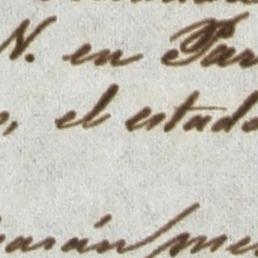 N. en Par
, el estado
arán men